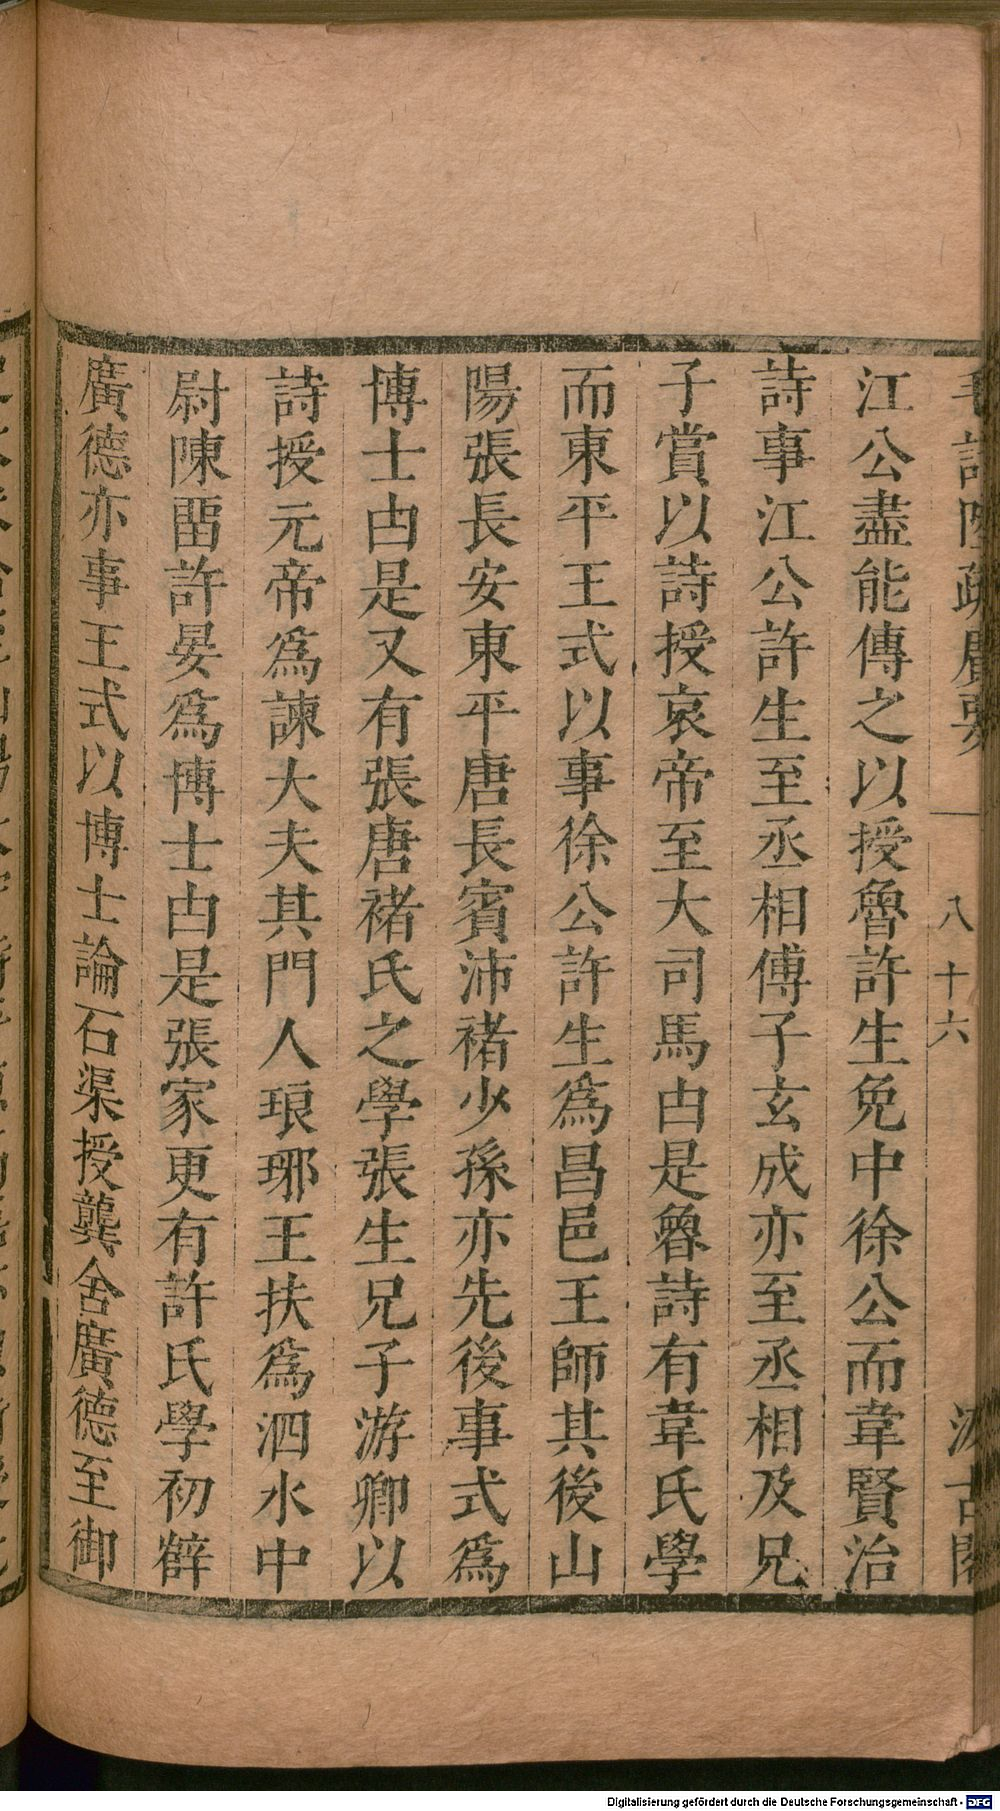 毛詩陸疏廣要
八 十六
汲古閣
江公盡能傳之以授魯許生免中徐公而韋賢治
詩事江公許生至丞相傅子玄成亦至丞相及兄
子賞以詩授哀帝至大司馬由是魯詩有韋氏學
而東平王式以事徐公許生為昌邑王師其後山
陽張長安東平唐長賓沛褚少孫亦先後事式為
博士由是又有張唐褚氏之學張生兄子游卿以
詩授元帝為諫大夫其門人琅琊王扶為泗水中
尉陳畱許晏為博士由是張家更有許氏學初薛
廣德亦事王式以博士論石渠授龔舍廣德至御
Digitalisierung gefördert durch die Deutsche Forschungsgemeinschaft - DFG